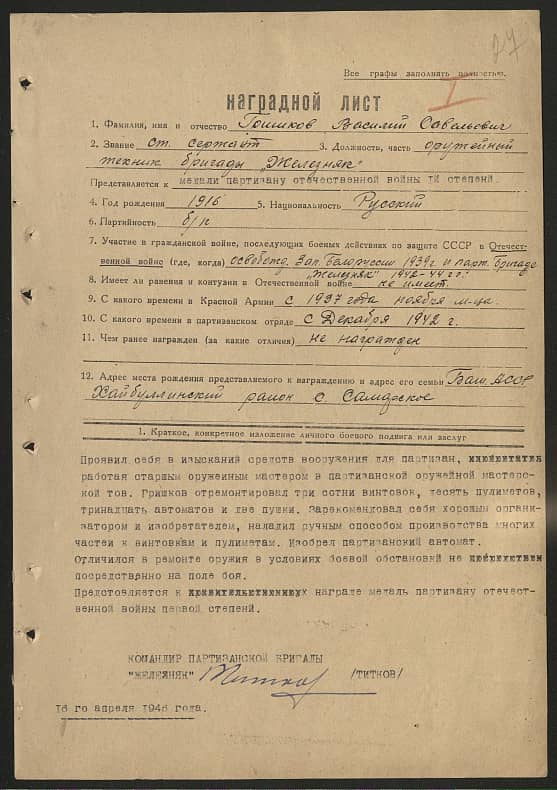 27
Все графы заполнять полностью.
I
НАГРАДНОЙ ЛИСТ
1. Фамилия, имя и отчество Гошиков Василий Савельович
2. Звание ст. сержант 3. Должность, часть оружейный
техник бригады „Железняк"
Представляется к медали партизану отечественной войны I‍й степени.
4. Год рождения 1916 5. Национальность Русский
6. Партийность б/п
7. Участие в гражданской войне, последующих боевых действиях по защите СССР в Отечест-
венной войне (где, когда) освобожд. Зап. Белоруссии 1939г. и парт. бригаде
„Железняк" 1942-44 г.г.
8. Имеет ли ранения и контузии в Отечественной войне не имеет.
9. С какого времени в Красной Армии с 1937 года ноября м-ца.
10. С какого времени в партизанском отряде с Декабря 1942 г.
11. Чем ранее награжден (за какие отличия) не награжден
12. Адрес места рождения представляемого к награждению и адрес его семьи Баш. АССР
Хайбуллинский район с. Самарское
1. Краткое, конкретное изложение личного боевого подвига или заслуг
Проявил себя в изысканий средств вооружения для партизан,
работая старшым оружейным мастером в партизанской оружейной мастерс-
кой тов. Гришков отремонтировал три сотни винтовок, десять пулиметов,
тринадцать автоматов и две пушки. Зарекомендовал себя хорошым органи-
затором и изобретателем, наладил ручным способом производства многих
частей к винтовкам и пулиметам. Изобрел партизанский автомат.
Отличился в ремонте оружия в условиях боевой обстановкй не
посредственно на поле боя.
Предстовляется к награде медаль партизану отечест-
венной войны первой степенй.
КОМАНДИР ПАРТИЗАНСКОЙ БРИГАДЫ
"ЖЕЛЕЗНЯК" Титков /ТИТКОВ/
16 го апреля 1946 года.